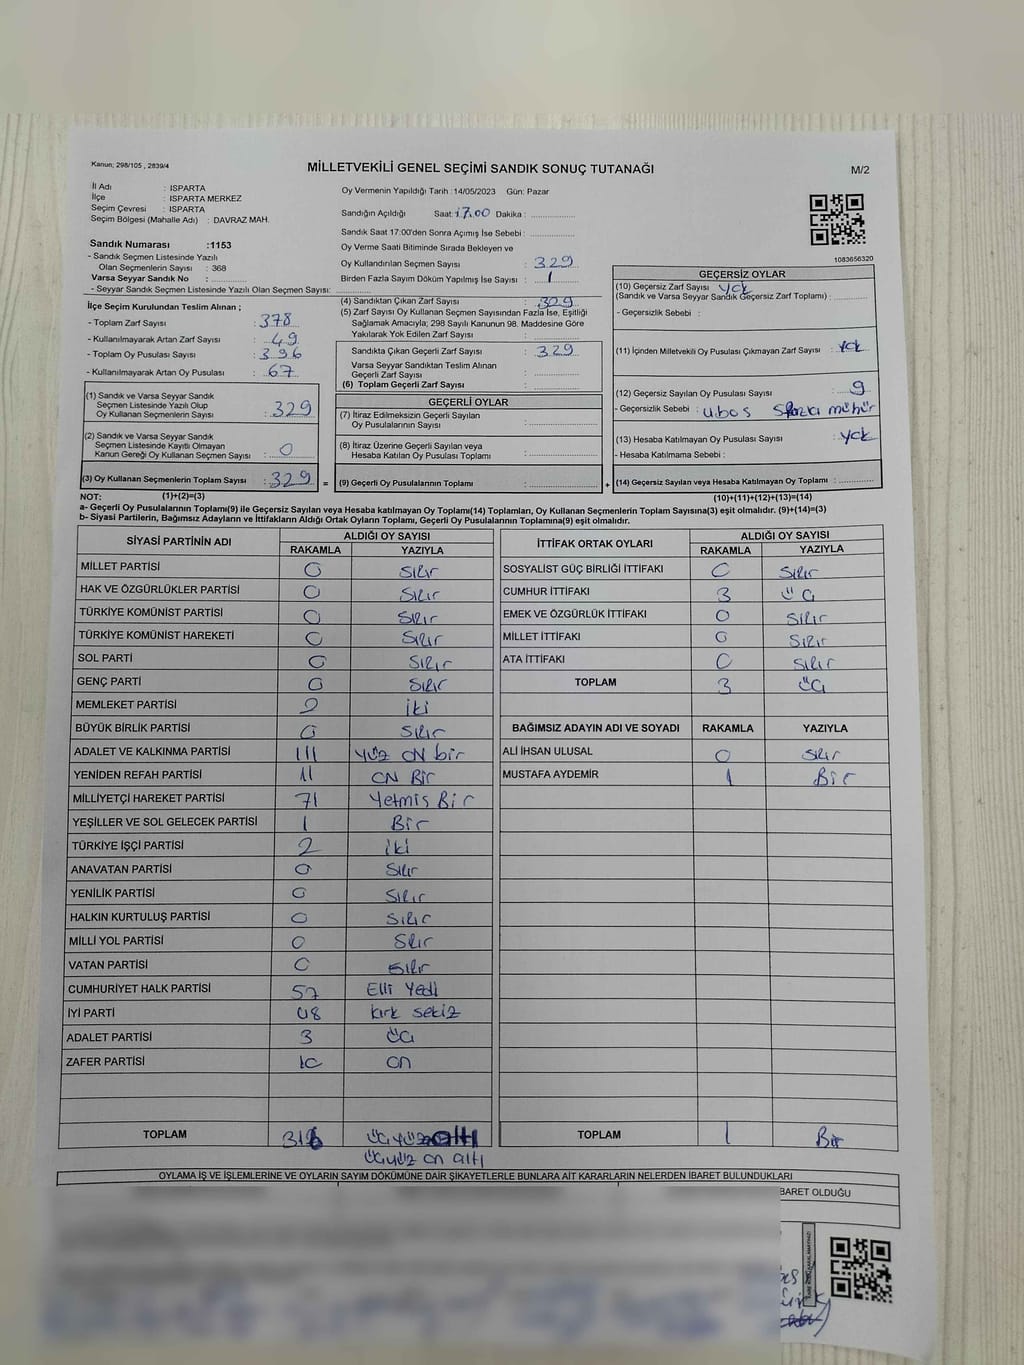 Kanun; 298/105 , 2839/4
MİLLETVEKİLİ GENEL SEÇİMİ SANDIK SONUÇ TUTANAĞI
M/2
İl Adı : ISPARTA
İlçe : ISPARTA MERKEZ
Seçim Çevresi : ISPARTA
Seçim Bölgesi (Mahalle Adı) : DAVRAZ MAH.
Sandık Numarası :1153
- Sandık Seçmen Listesinde Yazılı
Olan Seçmenlerin Sayısı : 368
Varsa Seyyar Sandık No :
- Seyyar Sandık Seçmen Listesinde Yazılı Olan Seçmen Sayısı:
İlçe Seçim Kurulundan Teslim Alınan ;
- Toplam Zarf Sayısı : 378
- Kullanılmayarak Artan Zarf Sayısı : 49
- Toplam Oy Pusulası Sayısı : 396
- Kullanılmayarak Artan Oy Pusulası : 67
(1) Sandık ve Varsa Seyyar Sandık
Seçmen Listesinde Yazılı Olup
Oy Kullanan Seçmenlerin Sayısı : 329
(2) Sandık ve Varsa Seyyar Sandık
Seçmen Listesinde Kayıtlı Olmayan
Kanun Gereği Oy Kullanan Seçmen Sayısı : 0
(3) Oy Kullanan Seçmenlerin Toplam Sayısı : 329 =
Oy Vermenin Yapıldığı Tarih :14/05/2023 Gün: Pazar
Sandığın Açıldığı Saat: 17.00 Dakika :
Sandık Saat 17:00'den Sonra Açımış İse Sebebi :
Oy Verme Saati Bitiminde Sırada Bekleyen ve
Oy Kullandırılan Seçmen Sayısı : 329
Birden Fazla Sayım Döküm Yapılmış İse Sayısı : 1
(4) Sandıktan Çıkan Zarf Sayısı : 329
(5) Zarf Sayısı Oy Kullanan Seçmen Sayısından Fazla İse, Eşitliği
Sağlamak Amacıyla; 298 Sayılı Kanunun 98. Maddesine Göre
Yakılarak Yok Edilen Zarf Sayısı :
Sandıkta Çıkan Geçerli Zarf Sayısı : 329
Varsa Seyyar Sandıktan Teslim Alınan
Geçerli Zarf Sayısı :
(6) Toplam Geçerli Zarf Sayısı :
GEÇERLİ OYLAR
(7) İtiraz Edilmeksizin Geçerli Sayılan
Oy Pusulalarının Sayısı :
(8) İtiraz Üzerine Geçerli Sayılan veya
Hesaba Katılan Oy Pusulası Toplamı :
(9) Geçerli Oy Pusulalarının Toplamı : +
1083656320
GEÇERSİZ OYLAR
(10) Geçersiz Zarf Sayısı yok
(Sandık ve Varsa Seyyar Sandık Geçersiz Zarf Toplamı) :
- Geçersizlik Sebebi :
(11) İçinden Milletvekili Oy Pusulası Çıkmayan Zarf Sayısı : yok
(12) Geçersiz Sayılan Oy Pusulası Sayısı : 9
- Geçersizlik Sebebi : mühür
(13) Hesaba Katılmayan Oy Pusulası Sayısı : yok
- Hesaba Katılmama Sebebi :
(14) Geçersiz Sayılan veya Hesaba Katılmayan Oy Toplamı :
NOT: (1)+(2)=(3) (10)+(11)+(12)+(13)=(14)
a- Geçerli Oy Pusulalarının Toplamı(9) ile Geçersiz Sayılan veya Hesaba Katılmayan Oy Toplamı(14) Toplamları, Oy Kullanan Seçmenlerin Toplam Sayısına(3) eşit olmalıdır. (9)+(14)=(3)
b- Siyasi Partilerin, Bağımsız Adayların ve İttifakların Aldığı Ortak Oyların Toplamı, Geçerli Oy Pusulalarının Toplamına(9) eşit olmalıdır.
SİYASİ PARTİNİN ADI ALDIĞI OY SAYISI
RAKAMLA YAZIYLA
MİLLET PARTİSİ 0 Sıfır
HAK VE ÖZGÜRLÜKLER PARTİSİ 0 Sıfır
TÜRKİYE KOMÜNİST PARTİSİ 0 Sıfır
TÜRKİYE KOMÜNİST HAREKETİ 0 Sıfır
SOL PARTİ 0 Sıfır
GENÇ PARTİ 0 Sıfır
MEMLEKET PARTİSİ 2 iki
BÜYÜK BİRLİK PARTİSİ 0 Sıfır
ADALET VE KALKINMA PARTİSİ 111 yüz on bir
YENİDEN REFAH PARTİSİ 11 on Bir
MİLLİYETÇİ HAREKET PARTİSİ 71 Yetmiş Bir
YEŞİLLER VE SOL GELECEK PARTİSİ 1 Bir
TÜRKİYE İŞÇİ PARTİSİ 2 iki
ANAVATAN PARTİSİ 0 Sıfır
YENİLİK PARTİSİ 0 Sıfır
HALKIN KURTULUŞ PARTİSİ 0 Sıfır
MİLLİ YOL PARTİSİ 0 Sıfır
VATAN PARTİSİ 0 Sıfır
CUMHURİYET HALK PARTİSİ 57 Elli Yedi
İYİ PARTİ 48 kırk sekiz
ADALET PARTİSİ 3 üç
ZAFER PARTİSİ 10 on
TOPLAM 316 üçyüz altı
üçyüz on altı
İTTİFAK ORTAK OYLARI ALDIĞI OY SAYISI
RAKAMLA YAZIYLA
SOSYALİST GÜÇ BİRLİĞİ İTTİFAKI 0 Sıfır
CUMHUR İTTİFAKI 3 üç
EMEK VE ÖZGÜRLÜK İTTİFAKI 0 Sıfır
MİLLET İTTİFAKI 0 Sıfır
ATA İTTİFAKI 0 Sıfır
TOPLAM 3 üç
BAĞIMSIZ ADAYIN ADI VE SOYADI RAKAMLA YAZIYLA
ALİ İHSAN ULUSAL 0 Sıfır
MUSTAFA AYDEMİR 1 Bir
TOPLAM 1 Bir
OYLAMA İŞ VE İŞLEMLERİNE VE OYLARIN SAYIM DÖKÜMÜNE DAİR ŞİKAYETLERLE BUNLARA AİT KARARLARIN NELERDEN İBARET BULUNDUKLARI
BARET OLDUĞU